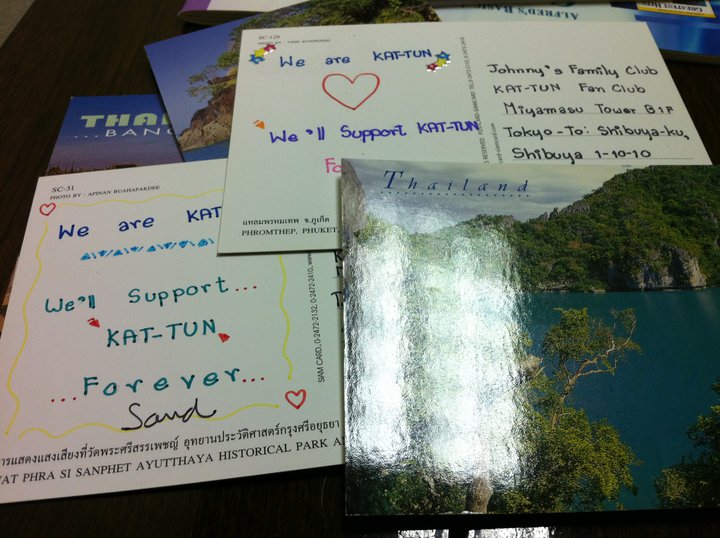 ALFRED'S
SC-129
We are KAT-TUN
We'll Support KAT-TUN
แหลมพรหมเทพ จ.ภูเก็ต
PHROMTHEP, PHUKET
Johnny's Family Club
KAT-TUN Fan Club
Miyamasu Tower B1F
Tokyo-To: Shibuya-ku,
Shibuya 1-10-10
BANG
SC-31
PHOTO BY : APINAN BUAHAPAKDEE
We are KAT
We'll Support...
KAT-TUN
...Forever...
Sand
SIAM CARD, 0-2472-2132, 0-2472-2410,
การแสดงแสงเสียงที่วัดพระศรีสรรเพชญ์ อุทยานประวัติศาสตร์กรุงศรีอยุธยา
PHRA SI SANPHET AYUTTHAYA HISTORICAL PARK
Thailand